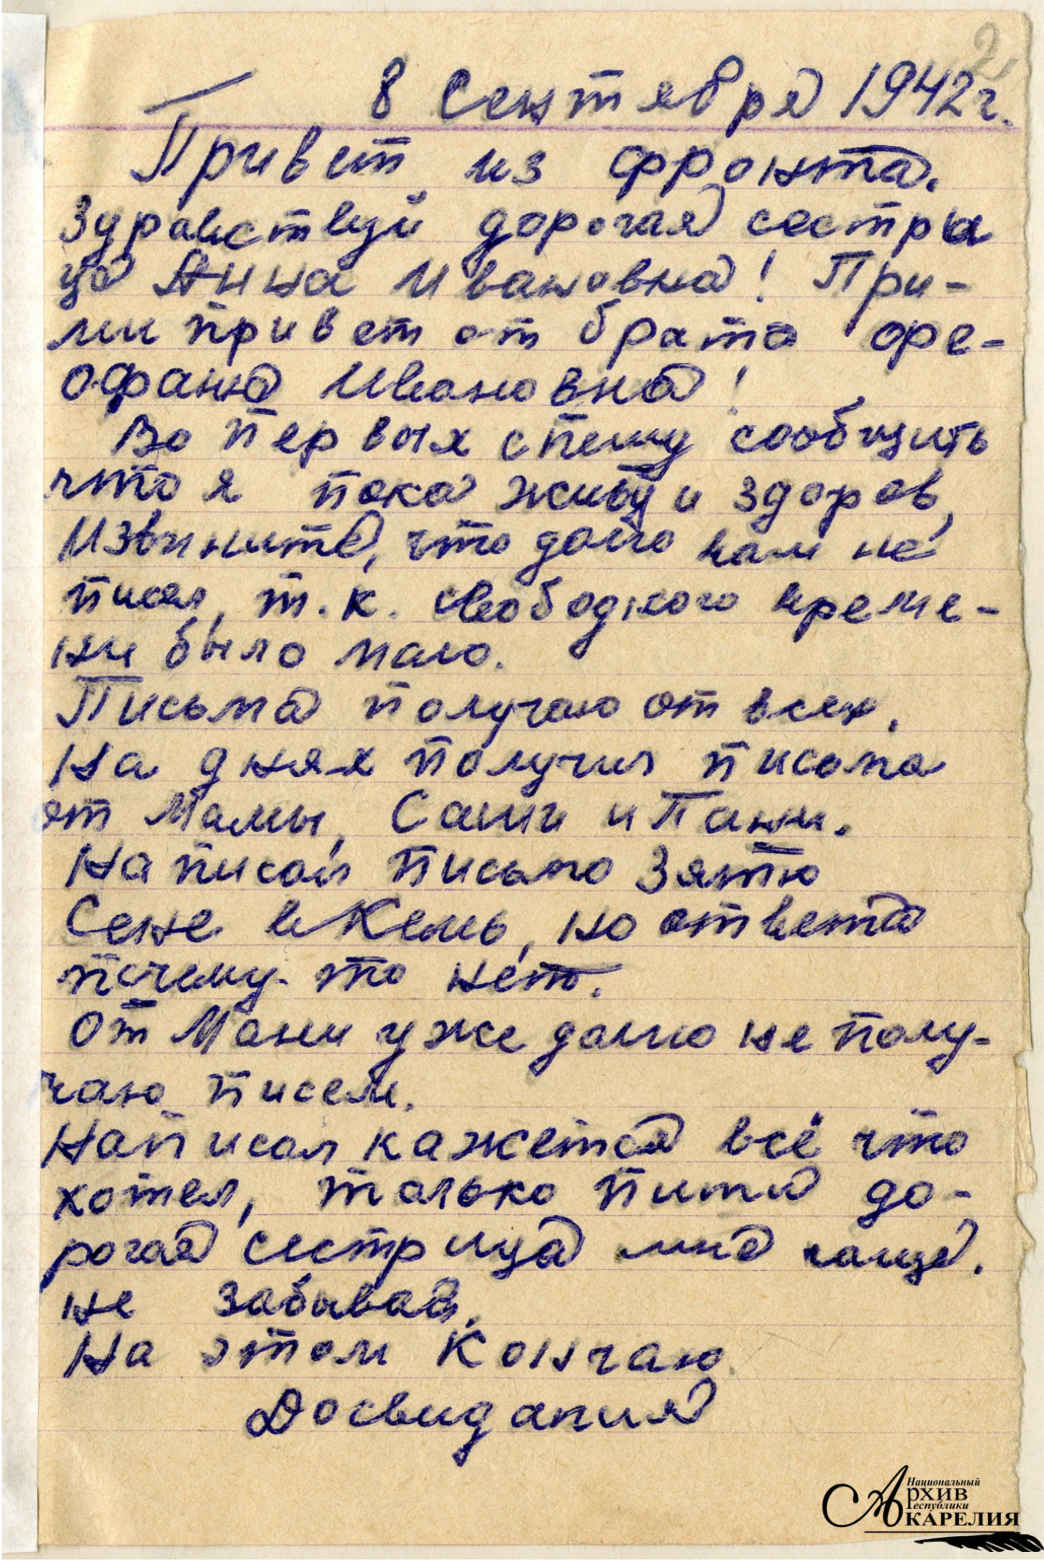 2.
8 Сентября 1942г.
Привет из фронта.
Здравствуй дорогая сестры
ца Анна Ивановна! При-
ми привет от брата Фе-
офана Ивановна!
Во первых спешу сообщить
что я пока живу и здоров,
Извините, что долго вам не
писал, т.к. свободного време-
ни было мало.
Письма получаю от всех.
На днях получил письма
от Мамы, Саши и Пани.
Написал письмо Зятю
Сене в Кемь, но ответа
почему-то нет.
От Мани уже долго не полу-
чаю писем.
Написал кажется всё что
хотел, только пиши до-
рогая сестрица мне чаще.
не забывай,
На этом Кончаю.
Досвидания
Национальный
Архив
Республики
КАРЕЛИЯ